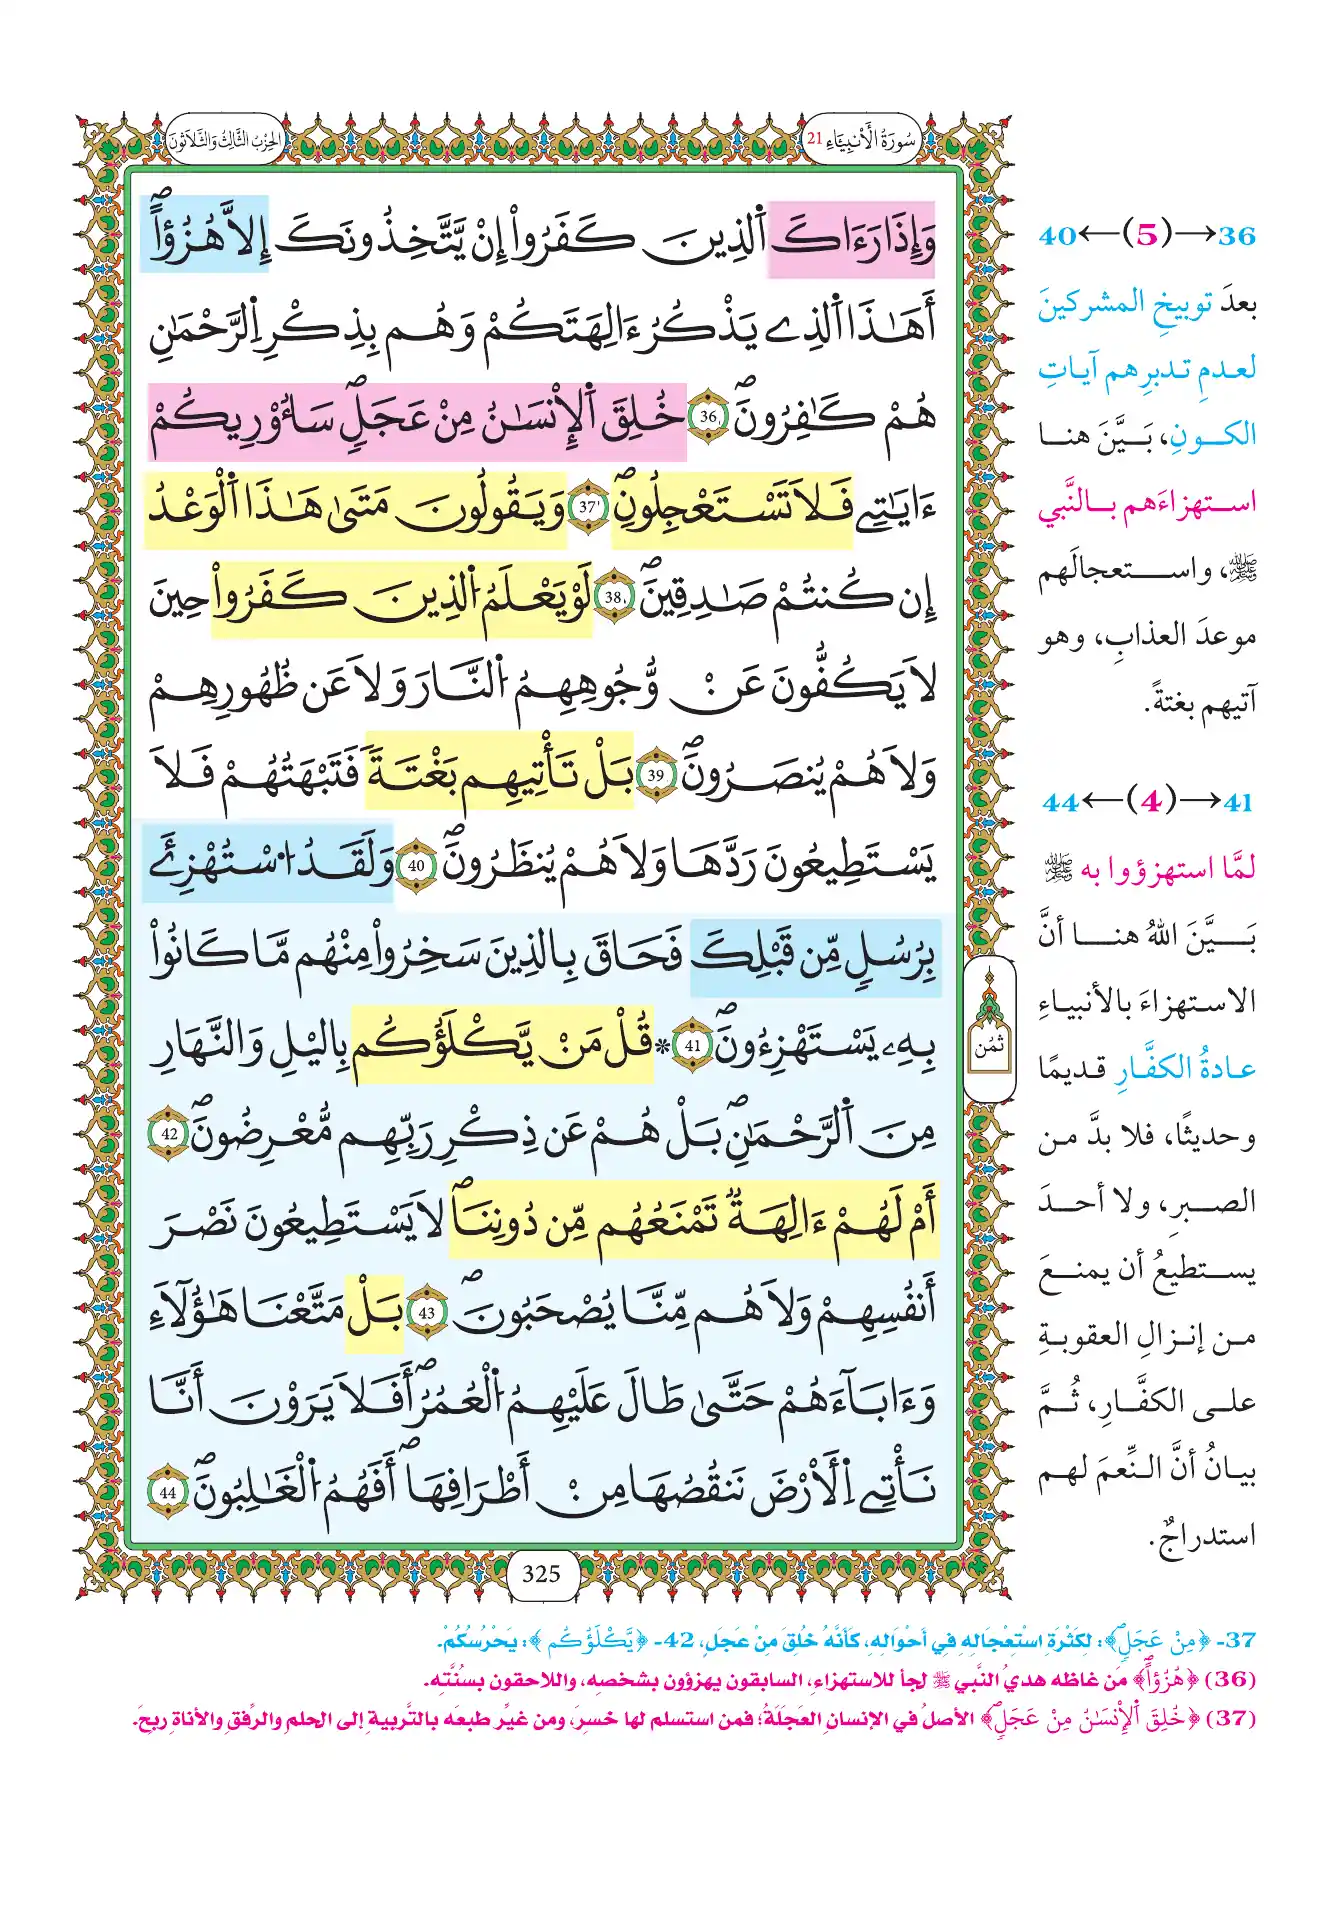 سُورَةُ الْأَنْبِيَاءِ 21
الحِزْبُ الثَّالِثُ وَالثَّلَاثُونَ
وَإِذَا رَءَاكَ اَ۬لذِينَ كَفَرُوٓاْ إِنْ يَّتَّخِذُونَكَ إِلَّا هُزُؤاًۖ
أَهَٰذَا اَ۬لذِے يَذْكُرُ ءَالِهَتَكُمْ وَهُم بِذِكْرِ اِ۬لرَّحْمَٰنِ
هُمْ كَٰفِرُونَۖ 36 خُلِقَ اَ۬لْإِنسَٰنُ مِنْ عَجَلٖۖ سَأُوْرِيكُمْ
ءَايَٰتِے فَلَا تَسْتَعْجِلُونِۖ 37 وَيَقُولُونَ مَتَىٰ هَٰذَا اَ۬لْوَعْدُ
إِن كُنتُمْ صَٰدِقِينَۖ 38 لَوْ يَعْلَمُ اُ۬لذِينَ كَفَرُواْ حِينَ
لَا يَكُفُّونَ عَنْ وُّجُوهِهِمُ اُ۬لنَّارَ وَلَا عَن ظُهُورِهِمْ
وَلَا هُمْ يُنصَرُونَۖ 39 بَلْ تَأْتِيهِم بَغْتَةٗ فَتَبْهَتُهُمْ فَلَا
يَسْتَطِيعُونَ رَدَّهَا وَلَا هُمْ يُنظَرُونَۖ 40 وَلَقَدُ اُ۟سْتُهْزِئَ
بِرُسُلٖ مِّن قَبْلِكَ فَحَاقَ بِالذِينَ سَخِرُواْ مِنْهُم مَّا كَانُواْ
بِهِۦ يَسْتَهْزِءُونَۖ 41 * قُلْ مَنْ يَّكْلَؤُكُم بِاليْلِ وَالنَّهَارِ
مِنَ اَ۬لرَّحْمَٰنِۖ بَلْ هُمْ عَن ذِكْرِ رَبِّهِم مُّعْرِضُونَۖ 42
أَمْ لَهُمْ ءَالِهَةٞ تَمْنَعُهُم مِّن دُونِنَاۖ لَا يَسْتَطِيعُونَ نَصْرَ
أَنفُسِهِمْ وَلَا هُم مِّنَّا يُصْحَبُونَۖ 43 بَلْ مَتَّعْنَا هَٰؤُلَآءِ
وَءَابَآءَهُمْ حَتَّىٰ طَالَ عَلَيْهِمُ اُ۬لْعُمُرُۖ أَفَلَا يَرَوْنَ أَنَّا
نَأْتِے اِ۬لْأَرْضَ نَنقُصُهَا مِنْ أَطْرَافِهَاۖ أَفَهُمُ اُ۬لْغَٰلِبُونَۖ 44
ثُمُن
325
36→(5)←40
بعدَ توبيخِ المشركينَ
لعدمِ تدبرِهم آياتِ
الكونِ، بَيَّنَ هنا
استهزاءَهم بالنَّبي
ﷺ، واستعجالَهم
موعدَ العذابِ، وهو
آتيهم بغتةً.
41→(4)←44
لمَّا استهزؤوا به ﷺ
بَيَّنَ اللهُ هنا أنَّ
الاستهزاءَ بالأنبياءِ
عادةُ الكفَّارِ قديمًا
وحديثًا، فلا بدَّ من
الصبرِ، ولا أحدَ
يستطيعُ أن يمنعَ
من إنزالِ العقوبةِ
على الكفَّارِ، ثُمَّ
بيانُ أنَّ النِّعمَ لهم
استدراجٌ.
37- ﴿مِنْ عَجَلٖۖ﴾: لِكَثْرَةِ اسْتِعْجَالِهِ فِي أَحْوَالِهِ، كَأَنَّهُ خُلِقَ مِنْ عَجَلٍ، 42- ﴿يَّكْلَؤُكُم﴾: يَحْرُسُكُمْ.
(36) ﴿هُزُؤاًۖ﴾ مَن غاظه هديُ النَّبي ﷺ لجأ للاستهزاءِ، السابقون يهزؤون بشخصِه، واللاحقون بسُنَّتِه.
(37) ﴿خُلِقَ اَ۬لْإِنسَٰنُ مِنْ عَجَلٖۖ﴾ الأصلُ في الإنسانِ العَجَلَةُ؛ فمن استسلم لها خسِرَ، ومن غيرَّ طبعَه بالتَّربيةِ إلى الحلمِ والرِّفقِ والأناةِ ربحَ.